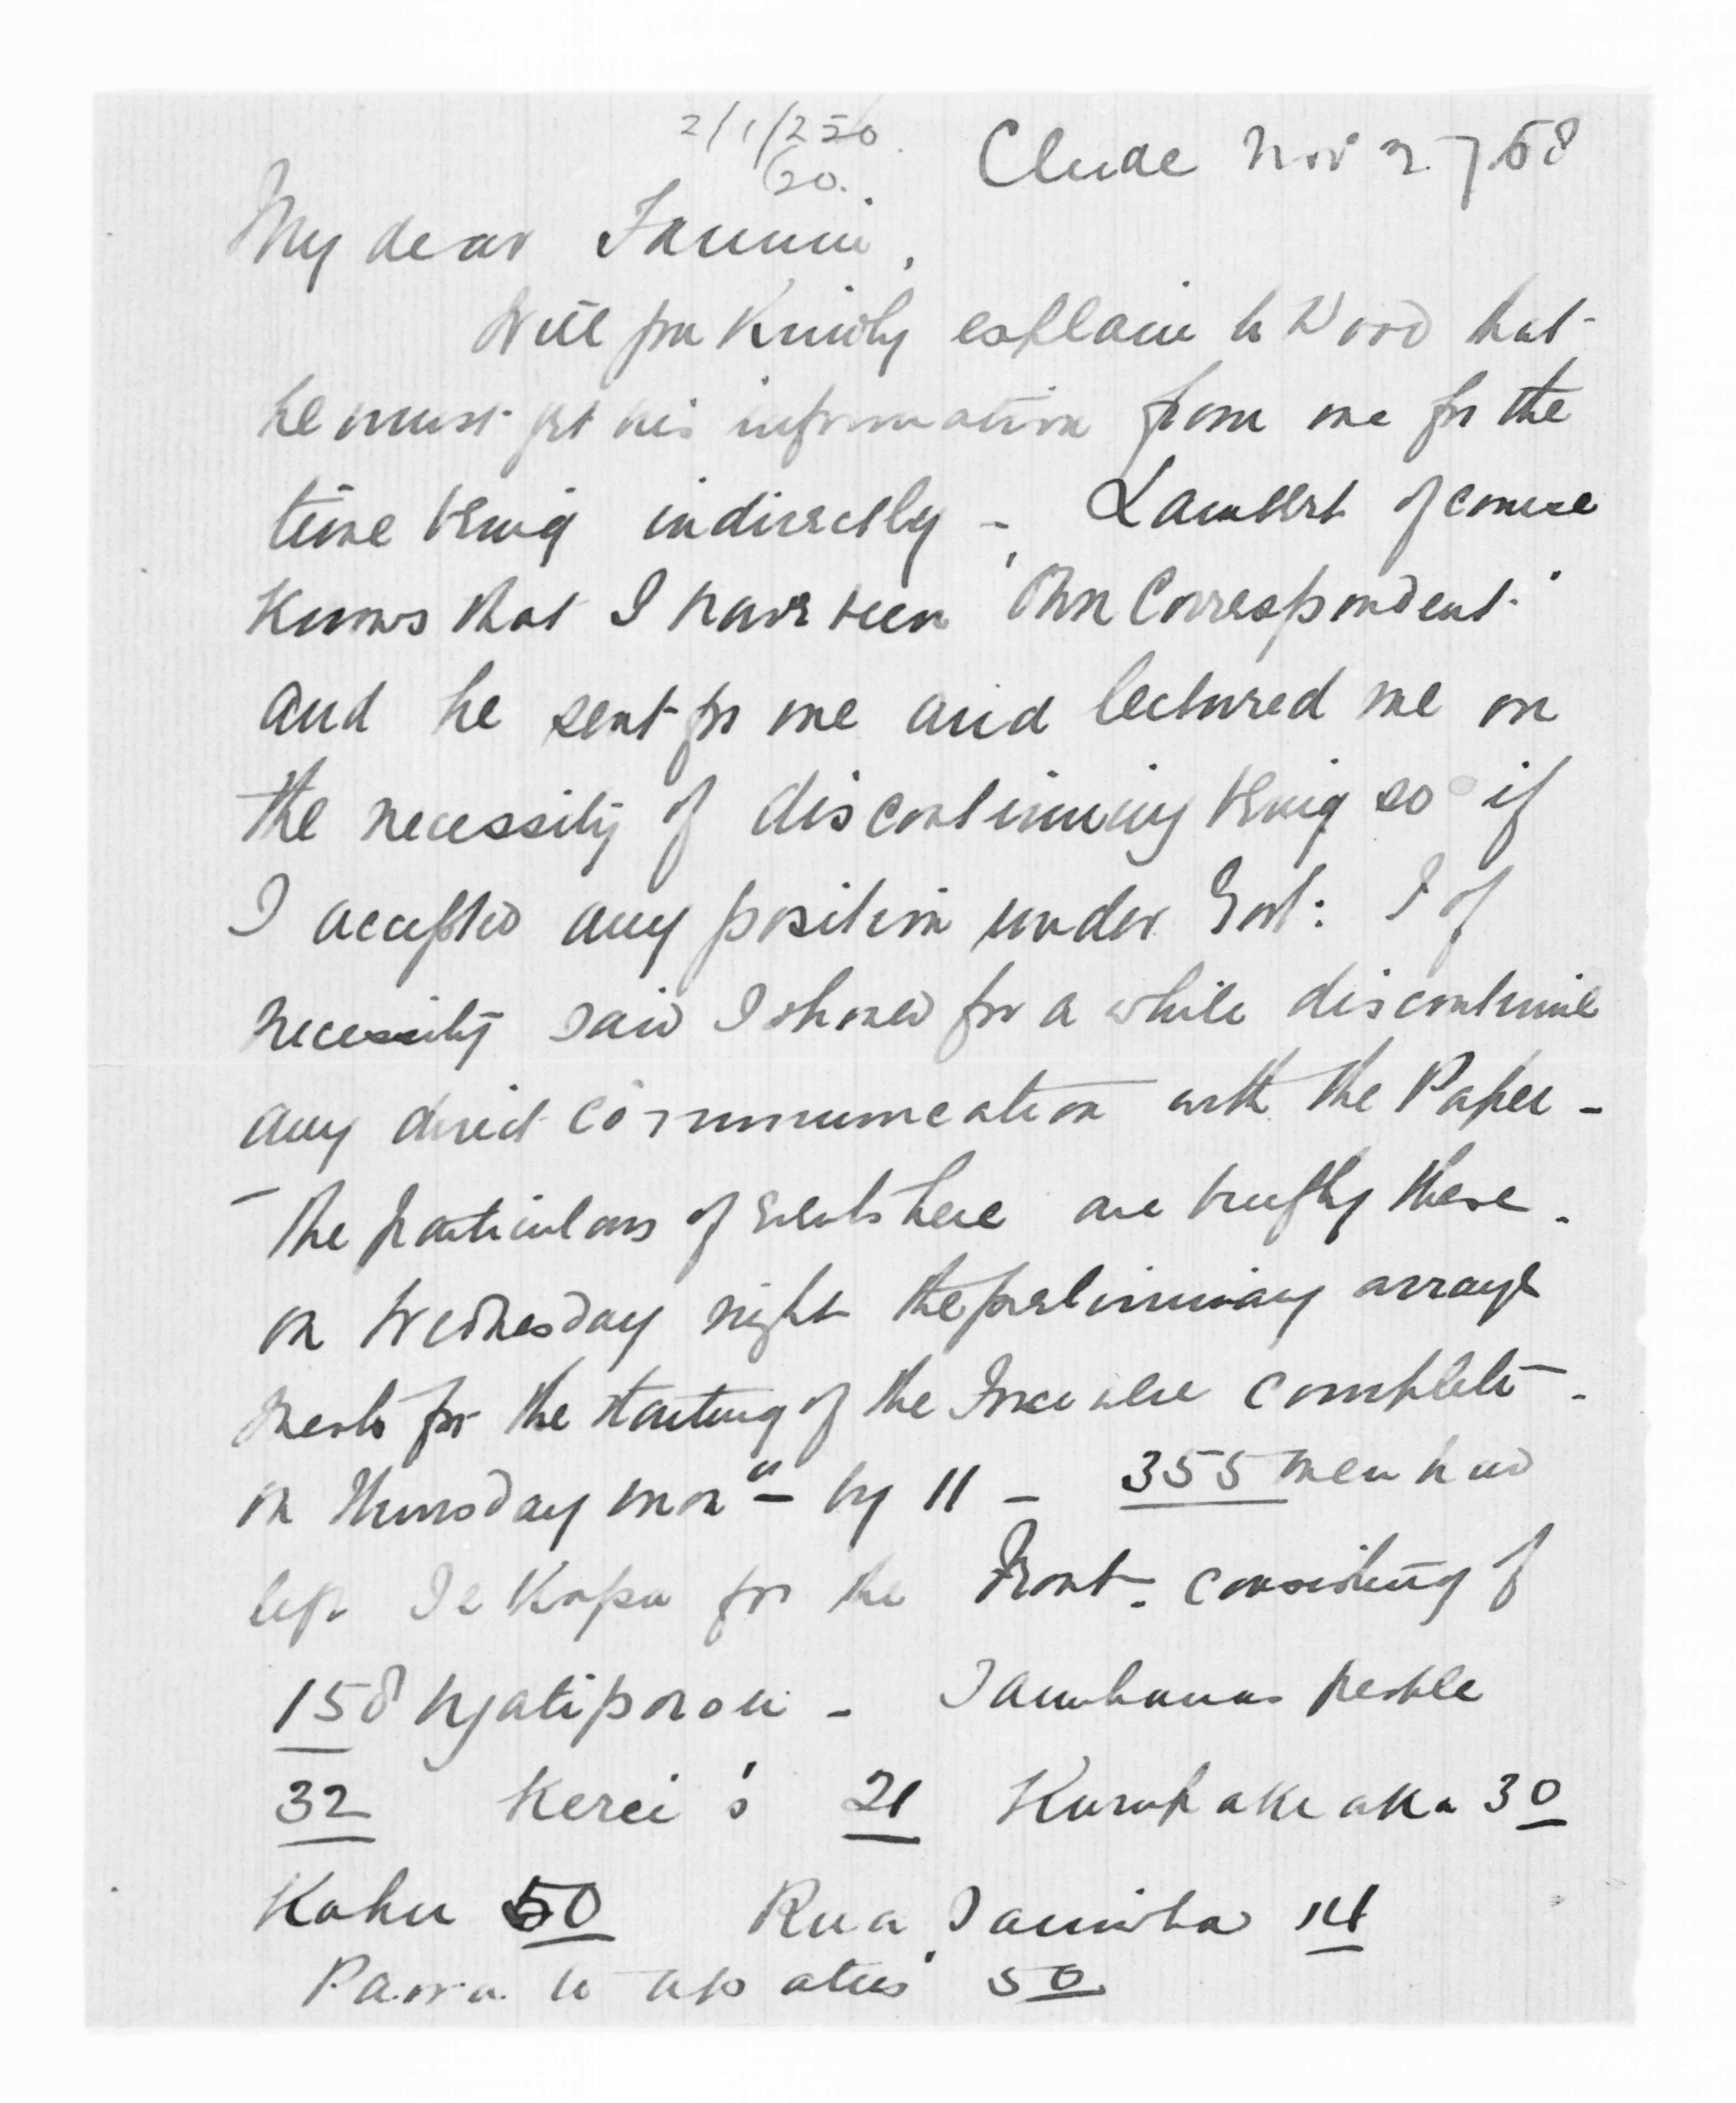 2/1/250
(20.
Clyde Nov 27/68
My dear Fannin,
Will you kindly explain to Wood that
he must get his information from me for the
time being indirectly - Lambert of course
knows that I have been 'Own Correspondent'
and he sent for me and lectured me on
the necessity of discontinuing being so if
I accepted any position under Govt: I of
necessity said I should for a while discontinue
any direct communication with the Paper -
- The particulars of events here are briefly these.
on Wednesday night the preliminary arrange
ments for the starting of the Force were complete -
on Thursday morn by 11 - 355 men had
left Te Kapu for the Front - consisting of
158 Ngatiporou - Tamihanas people
32 Kerei's 21 Kurupakiaka 30
Kahu 50 Rua 14
Paora 50